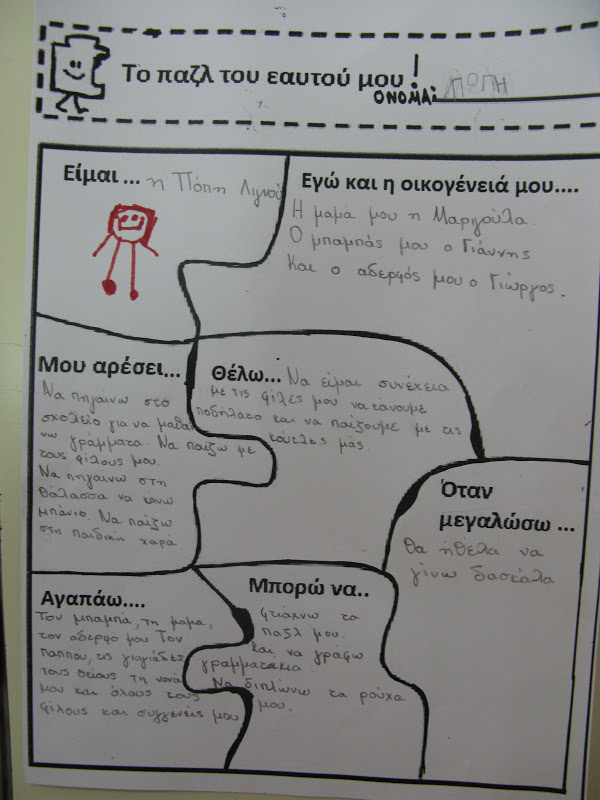 Το παζλ του εαυτού μου!
ΟΝΟΜΑ: ΠΟΠΗ
Είμαι ... η Πόπη Λιγνού
Εγώ και η οικογένειά μου....
Η μαμά μου η Μαργούλα.
Ο μπαμπάς μου ο Γιάννης
και ο αδερφός μου ο Γιώργος.
Μου αρέσει...
Να πηγαίνω στο
σχολείο για να μαθαί
νω γράμματα. Να παίζω με
τους φίλους μου.
Να πηγαίνω στη
θάλασσα να κάνω
μπάνιο. Να παίζω
στη παιδική χαρά
Θέλω... Να είμαι συνέχεια
με τις φίλες μου να κάνουμε
ποδήλατο και να παίζουμε με τις
κούκλες μας.
Όταν
μεγαλώσω ...
Θα ήθελα να
γίνω δασκάλα
Αγαπάω....
Τον μπαμπά, τη μαμά,
τον αδερφό μου Τον
παππού, τις γιαγιάδες
τους θείους τη νονά
μου και όλους τους
φίλους και συγγενείς μου
Μπορώ να..
φτιάχνω το
παζλ μου.
και να γράφω
γραμματάκια
Να διπλώνω τα ρούχα
μου.